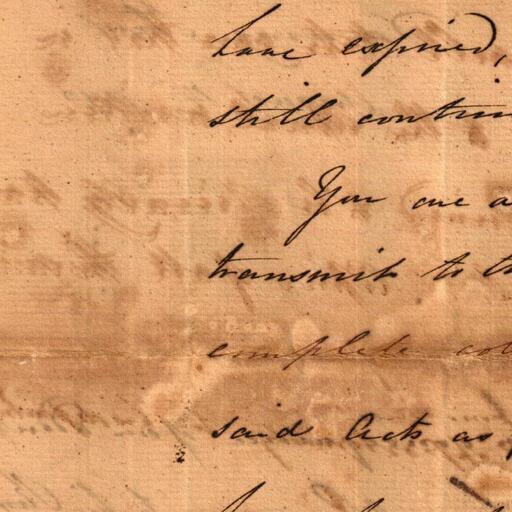 have expired,
still contin
You are a
transmit to th
complete co
said Acts as